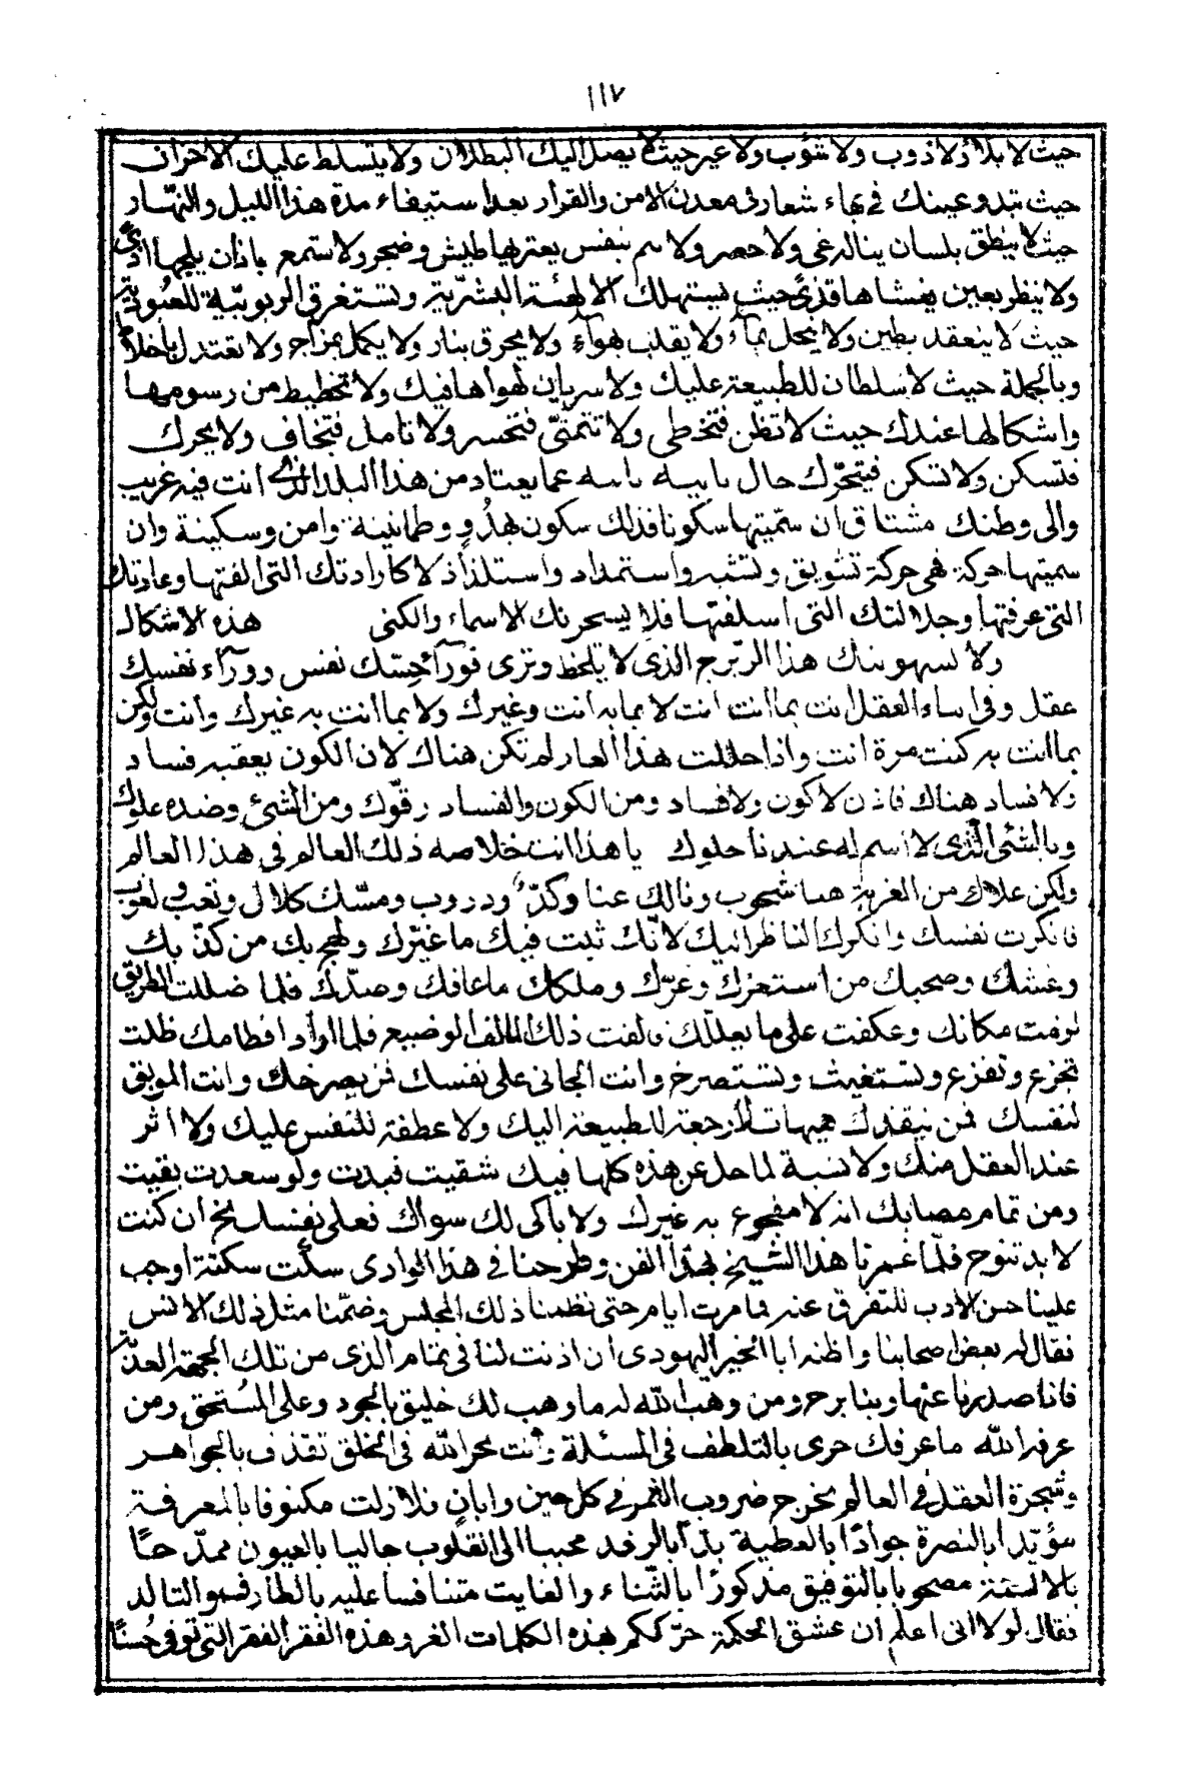 ١١٧
حيث لا بلاء ولا ذوب ولا شوب ولا غير حيث لا يصل اليك البطلان ولا يتسلط عليك الاحزان
حيث تبدو عينك فى بهاء شعارى معدن الامن والقرار بعد استيفاء مدة هذا الليل والنهار
حيث لا ينطق بلسان يناله عى ولا حصر ولا سم بنفس يعتريها طيش وضجر ولا تستمع باذان يلجها اذى
ولا ينظر بعين يغشاها قذى حيث يستهلك الالهية البشرية وتستغرق الربوبية للعبودية
حيث لا ينعقد بطين ولا ينحل بماء ولا يقلب بهواء ولا يحرق بنار ولا يكمل بمزاج ولا تعتدل باخلاط
وبالجملة حيث لا سلطان للطبيعة عليك ولا سريان لهواها فيك ولا تخطيط من رسومها
واشكالها عندك حيث لا تظن فتخطى ولا تتمنى فتخسر ولا تامل فتخاف ولا يحرك
فتسكن ولا تسكن فيتحرك حال بابيه باسه عما يعتاد من هذا البلد الذى انت فيه غريب
والى وطنك مشتاق ان سميتها سكونا فذلك سكون هدو وطمانينة وامن وسكينة وان
سميتها حركة فهى حركة تشويق وتشبه واستمداد واستلذاذ لا كارادتك التى الفتها وعادتك
التى عرفتها وجلالتك التى اسلفتها فلا يسحرنك الاسماء والكنى هذه الاشكال
ولا تسهوينك هذا الزبرج الذى لا تلحظ وترى فورآء حسك نفس وورآء نفسك
عقل وفى اساء العقل انت بما انت انت لا بما به انت وغيرك ولا بما انت به غيرك وانت ولكن
بما انت به كنت مرة انت واذا حللت هذا العار لم تكن هناك لان الكون يعقبه فساد
ولا فساد هناك فاذن لا كون ولا فساد ومن الكون والفساد رقوك ومن الشئ وضده علوك
وبالشئ الذى لا اسم له عندنا حلوك يا هذا انت خلاصه ذلك العالم فى هذا العالم
ولكن علاك من الغربة هنا شحوب ونالك عنا وكد ودروب ومسك كلال وتعب ولغوب
فانكرت نفسك وانكرك الناظر اليك لانك ثبت فيك ما غيرك ولهج بك من كذب بك
وغشك وصحبك من استعزك وغرك وملكك ما عافك وصدك فلما ضللت الطريق
لزمت مكانك وعكفت على ما يعللك فالفت ذلك المالف الوضيع فلما اراد افطامك ظلت
تجزع وتفزع وتستغيث وتستصرخ وانت الجانى على نفسك فمن يصرخك وانت الموبق
لنفسك فمن ينقذك هيهات لا رجعة للطبيعة اليك ولا عطفة للنفس عليك ولا اثر
عند العقل منك ولا نسبة لما حل عن هذه كلها فيك شقيت فبدت ولو سعدت بقيت
ومن تمام مصابك انه لا مفجوع به غيرك ولا باكى لك سواك فعلى نفسك نح ان كنت
لا بد تنوح فلما غمرنا هذا الشيخ بهذا الفن وطرحنا فى هذا الوادى سكت سكتة اوجب
علينا حسن الادب للتفرق عنه فما مرت ايام حتى نظمنا ذلك المجلس وضمنا مثل ذلك الانس
فقال له بعض اصحابنا واظنه ابا الخير اليهودى ان اذنت لنا فى تمام الذى من تلك الجمعة العذبة
فانا صدرنا عنها وبنا برح ومن وهب الله له ما وهب لك خليق بالجود وعلى المستحق ومن
عرفه الله ما عرفك حرى بالتلطف فى المسئلة وانت بحر الله فى الخلق تقذف بالجواهر
وشجرة العقل فى العالم تخرج ضروب الثمر فى كل حين وابان فلا زلت مكنوفا بالمعرفة
مؤيدا بالنصرة جوادا بالعطية بدا بالرفد محببا الى القلوب حاليا بالعيون ممدحا
بالالسنة مصحوبا بالتوفيق مذكورا بالثناء والغايت متنافسا عليه بالطارف والتالد
فقال لولا انى اعلم ان عشق الحكمة حرككم بهذه الكلمات الغر وهذه الفقر الفقر التى توفى حسنا